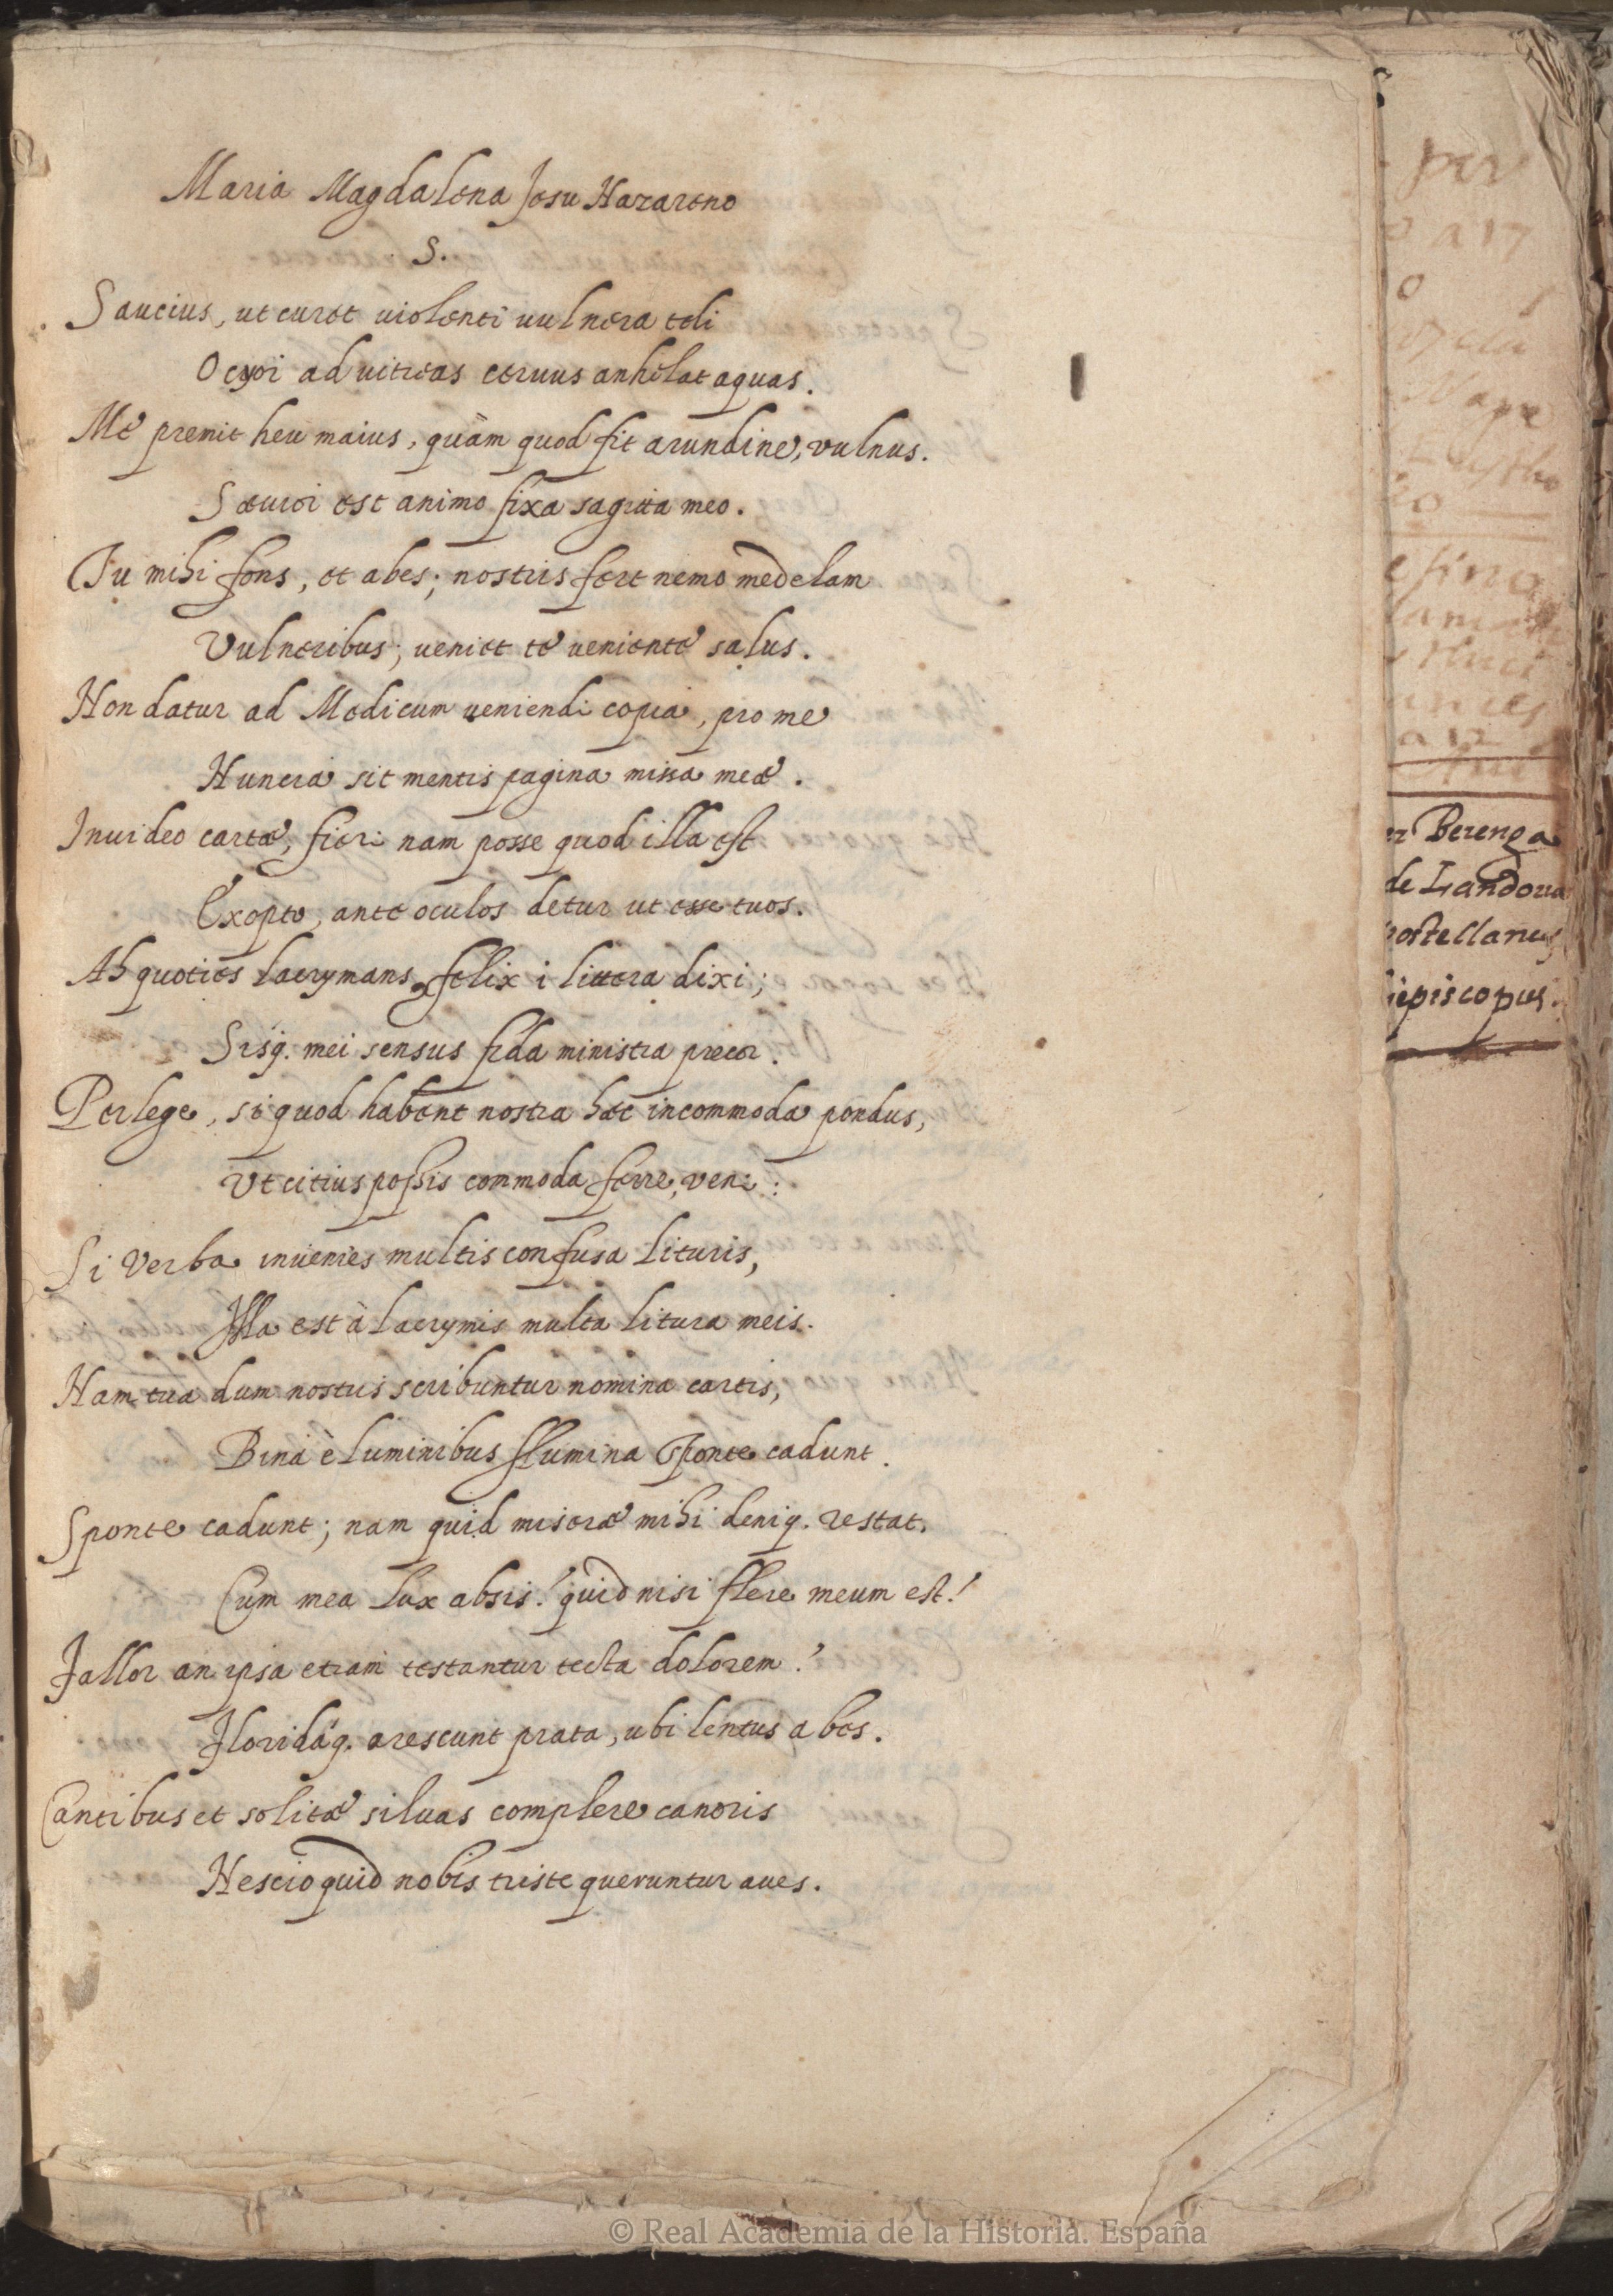 Maria Magdalena Jesu Nazareno
S.
Saucius, ut curet uiolenti uulnera teli
Ocyor ad uitreas ceruus anhelat aquas.
Me premit heu maius, quàm quod fit arundine, vulnus.
Sæuior est animo fixa sagitta meo.
Tu mihi fons, et abes; nostris fert nemo medelam
Vulneribus; ueniet te ueniente salus.
Non datur ad Medicum ueniendi copia, pro me
Nuncia sit mentis pagina missa meæ.
Inuideo cartæ, fieri nam posse quod illa est
Exopto, ante oculos detur ut esse tuos.
Ah quoties lacrymans, felix i littera dixi;
Sisq. mei sensus fida ministra precor.
Perlege, si quod habent nostra hæc incommoda pondus,
Vt citius possis commoda ferre, veni:
Si verba inuenies multis confusa lituris,
Illa est à lacrymis multa litura meis.
Nam tua dum nostris scribuntur nomina cartis,
Bina è luminibus flumina sponte cadunt.
Sponte cadunt; nam quid miseræ mihi deniq. restat,
Cum mea lux absis! quid nisi flere meum est!
Fallor an ipsa etiam testantur tecta dolorem?
Floridaq. arescunt prata, ubi lentus abes.
Cantibus et solitæ siluas complere canoris
Nescio quid nobis triste queruntur aues.
per
a 17
Berenga
de Landoria
postellanus
iepiscopus.
© Real Academia de la Historia. España